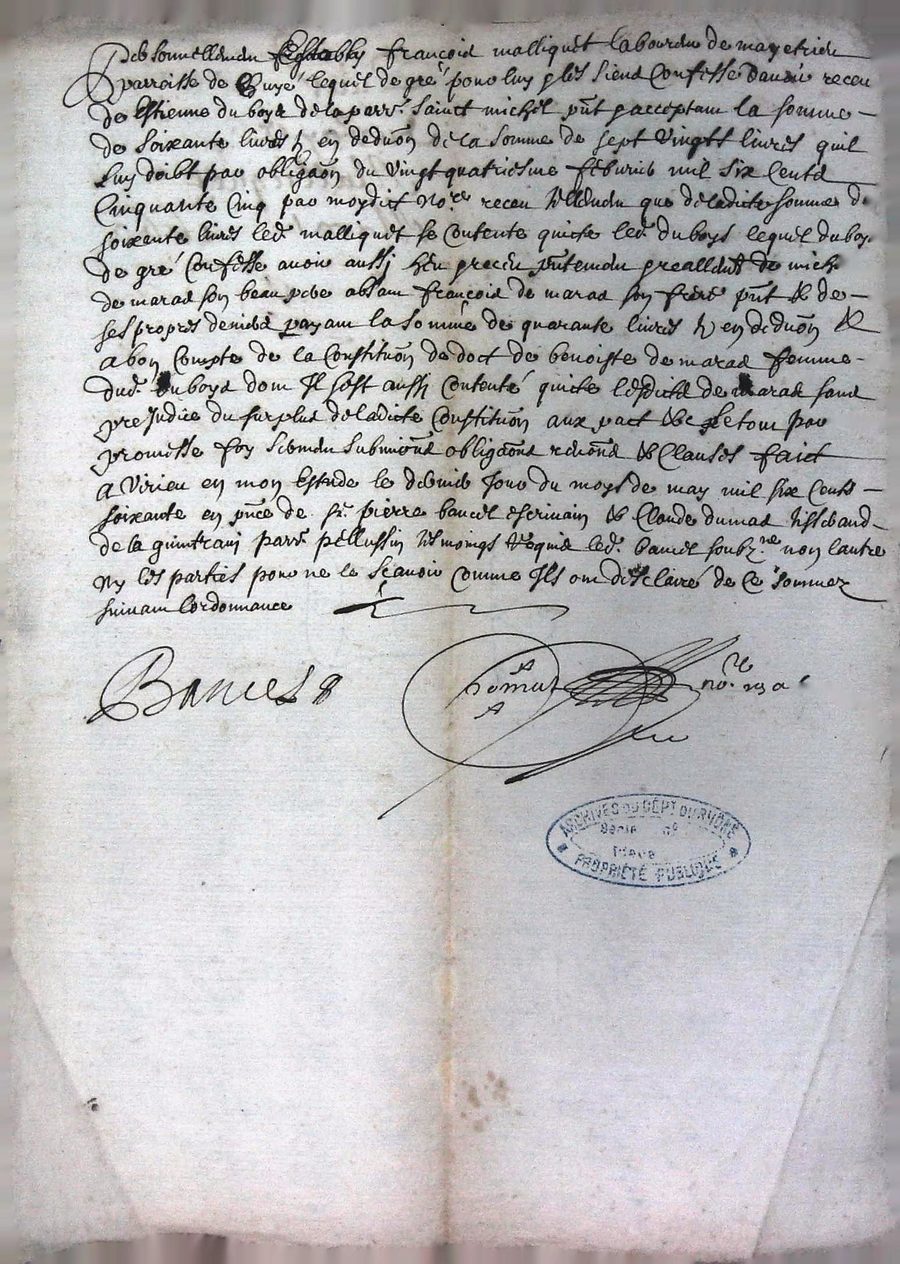 Personnellemen Establly françois malliquet laboureur de mayetrieu
parroisse de Buyé lequel de gré pour luy & les siens Confesse davoir receu
de Estienne du boys de la parr. Sainct michel pnt & acceptam la somme
de soixante livres tz en deduon de la somme de sept vingtz livres quil
luy doibt par obligaon du vingt quatriesme febvrier mil six Cents
Cinquante Cinq par moydict nore. receu tellemen que de ladicte somme de
soixente livres led. malliquet se Contente quicte led. du boys lequel du boys
de gré Confesse avoir aussi heu & receu pntemen & reallemt de
de maras son beau pere absam françois de maras son frere pnt & de
ses propres deniers payam la somme de quarante livres tz en deduon &
a bon Compte de la Constituon de doct de benoiste de maras femme
dud. du boys dom Il sest aussi Contenté quicte lesdicts de maras sans
prejudice du surplus de ladicte Constituon aux pact &c. Retour par
promesse foy sermen submions obligaons renons & Clauses faict
A Virieu en mon Estude le dernier Jour du moys de may mil six Cents
soixante en pnce de sr. pierre bancel escrivain & Claude dumas tisserand
de la guintrani parr. pellussin tesmoings Requis led. bancel soubz.ne non lautre
ny les parties pour ne le sçavoir Comme Ils om desclairé de Ce sommez
suivam lordonnance
Bancel
nore. royal
ARCHIVES DU DÉPT DU RHÔNE
Série no
Pièce
PROPRIÉTÉ PUBLIQUE